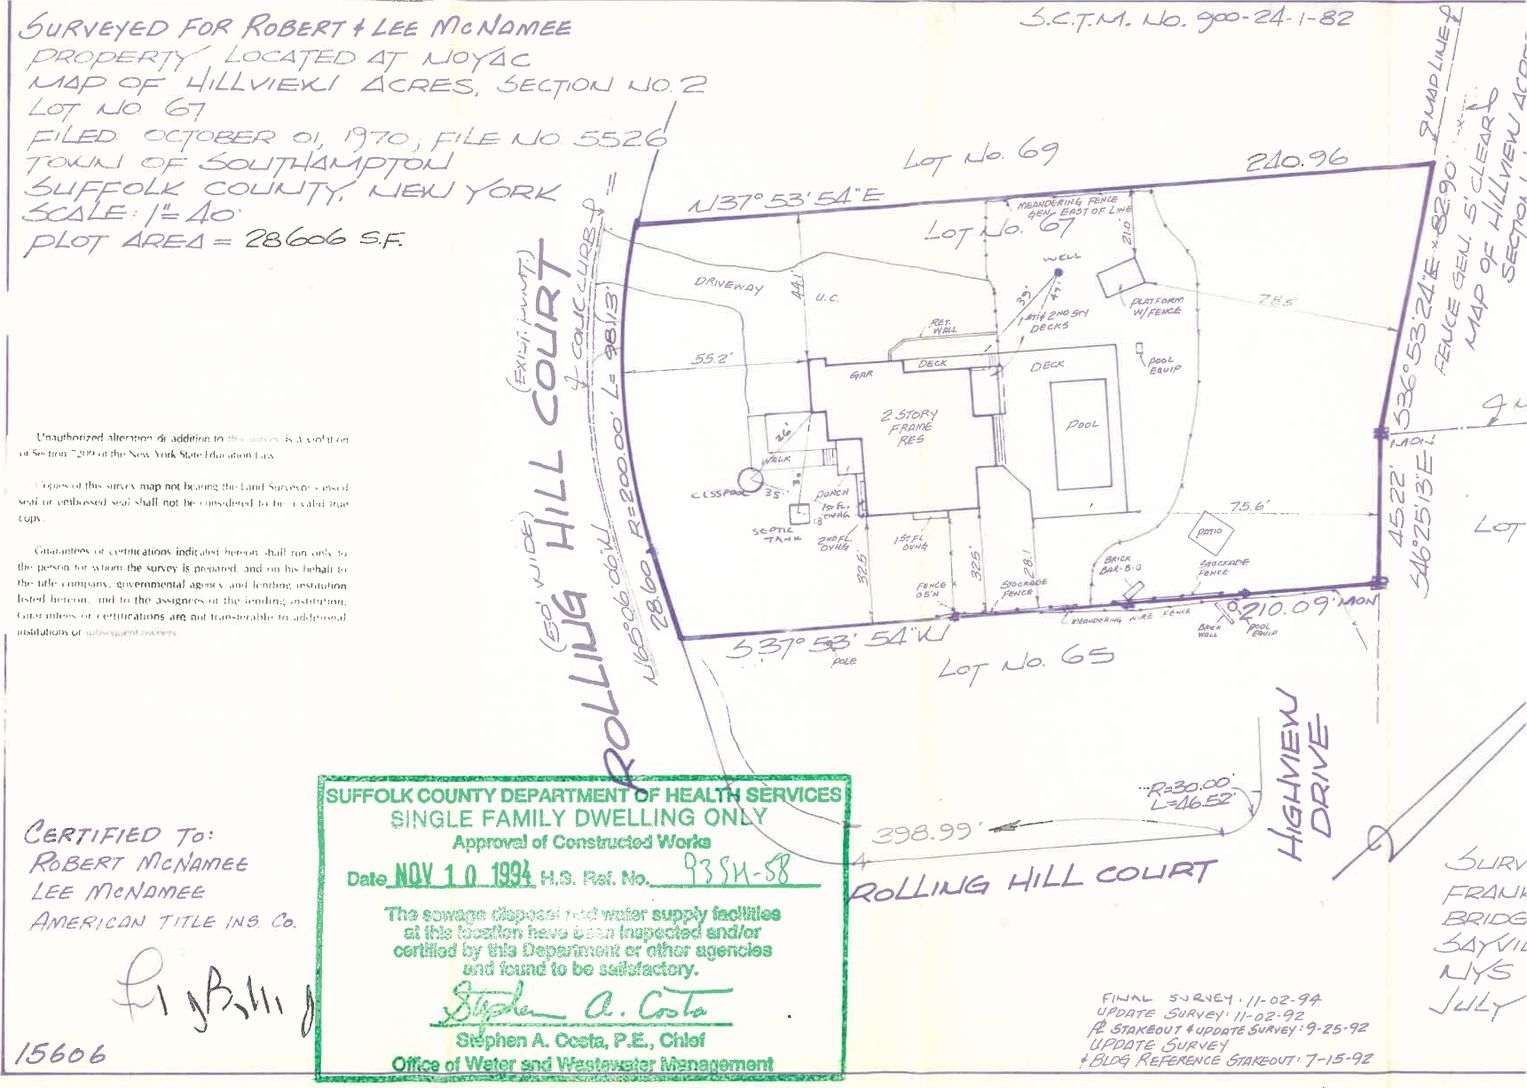 SURVEYED FOR ROBERT & LEE MCNAMEE
PROPERTY LOCATED AT NOYAC
MAP OF HILLVIEW ACRES, SECTION NO. 2
LOT NO 67
FILED OCTOBER 01, 1970, FILE NO. 5526
TOWN OF SOUTHAMPTON
SUFFOLK COUNTY, NEW YORK
SCALE: 1"=40'
PLOT AREA = 28606 S.F.
S.C.T.M. NO. 900-24-1-82
LOT NO. 69
240.96
N37°53'54"E
MEANDERING FENCE
GEN. EAST OF LINE
LOT NO. 67
MAP LINE
FENCE GEN. 5' CLEAR
MAP OF HILLVIEW ACRES
SECTION
S36°53'24"E 82.90'
WELL
21.0'
PLATFORM
W/FENCE
78.5'
DRIVEWAY
44.1'
U.C.
39'
47'
1ST & 2ND STY
DECKS
RET.
WALL
POOL
EQUIP
55.2'
GAR
DECK
DECK
2 STORY
FRAME
RES
POOL
26'
WALK
CESSPOOL
35'
SEPTIC
TANK
18'
PORCH
1ST FL.
OVHG.
2ND FL.
OVHG
1ST FL
OVHG
32.5'
32.5'
28.1
FENCE
0.5'N
STOCKADE
FENCE
BRICK
BAR-B-Q
PATIO
75.6'
STOCKADE
FENCE
MEANDERING WIRE FENCE
BRICK
WALL
POOL
EQUIP
210.09'
MON
MON
45.22'
S46°25'13"E
LOT
S37°53'54"W
POLE
LOT NO. 65
(EXIST. PVMT.)
CONC CURB
R=200.00' L=98.13'
28.60
N65°06'06"W
(50 WIDE)
ROLLING HILL COURT
HIGHVIEW
DRIVE
R=30.00'
L=46.52'
398.99'
ROLLING HILL COURT
Unauthorized alteration or addition to this survey is a violation
of Section 7209 of the New York State Education Law.
Copies of this survey map not bearing the Land Surveyor's inked
seal or embossed seal shall not be considered to be a valid true
copy.
Guarantees or certifications indicated hereon shall run only to
the person for whom the survey is prepared, and on his behalf to
the title company, governmental agency and lending institution
listed hereon, and to the assignees of the lending institution.
Guarantees or certifications are not transferable to additional
institutions or subsequent owners.
CERTIFIED TO:
ROBERT MCNAMEE
LEE MCNAMEE
AMERICAN TITLE INS. CO.
15606
SUFFOLK COUNTY DEPARTMENT OF HEALTH SERVICES
SINGLE FAMILY DWELLING ONLY
Approval of Constructed Works
Date NOV 10 1994 H.S. Ref. No. 93SH-58
The sewage disposal and water supply facilities
at this location have been inspected and/or
certified by this Department or other agencies
and found to be satisfactory.
Stephen A. Costa
Stephen A. Costa, P.E., Chief
Office of Water and Wastewater Management
FINAL SURVEY: 11-02-94
UPDATE SURVEY: 11-02-92
STAKEOUT & UPDATE SURVEY: 9-25-92
UPDATE SURVEY
& BLDG REFERENCE STAKEOUT: 7-15-92
SURV
FRANK
BRIDG
SAYVIL
NYS
JULY